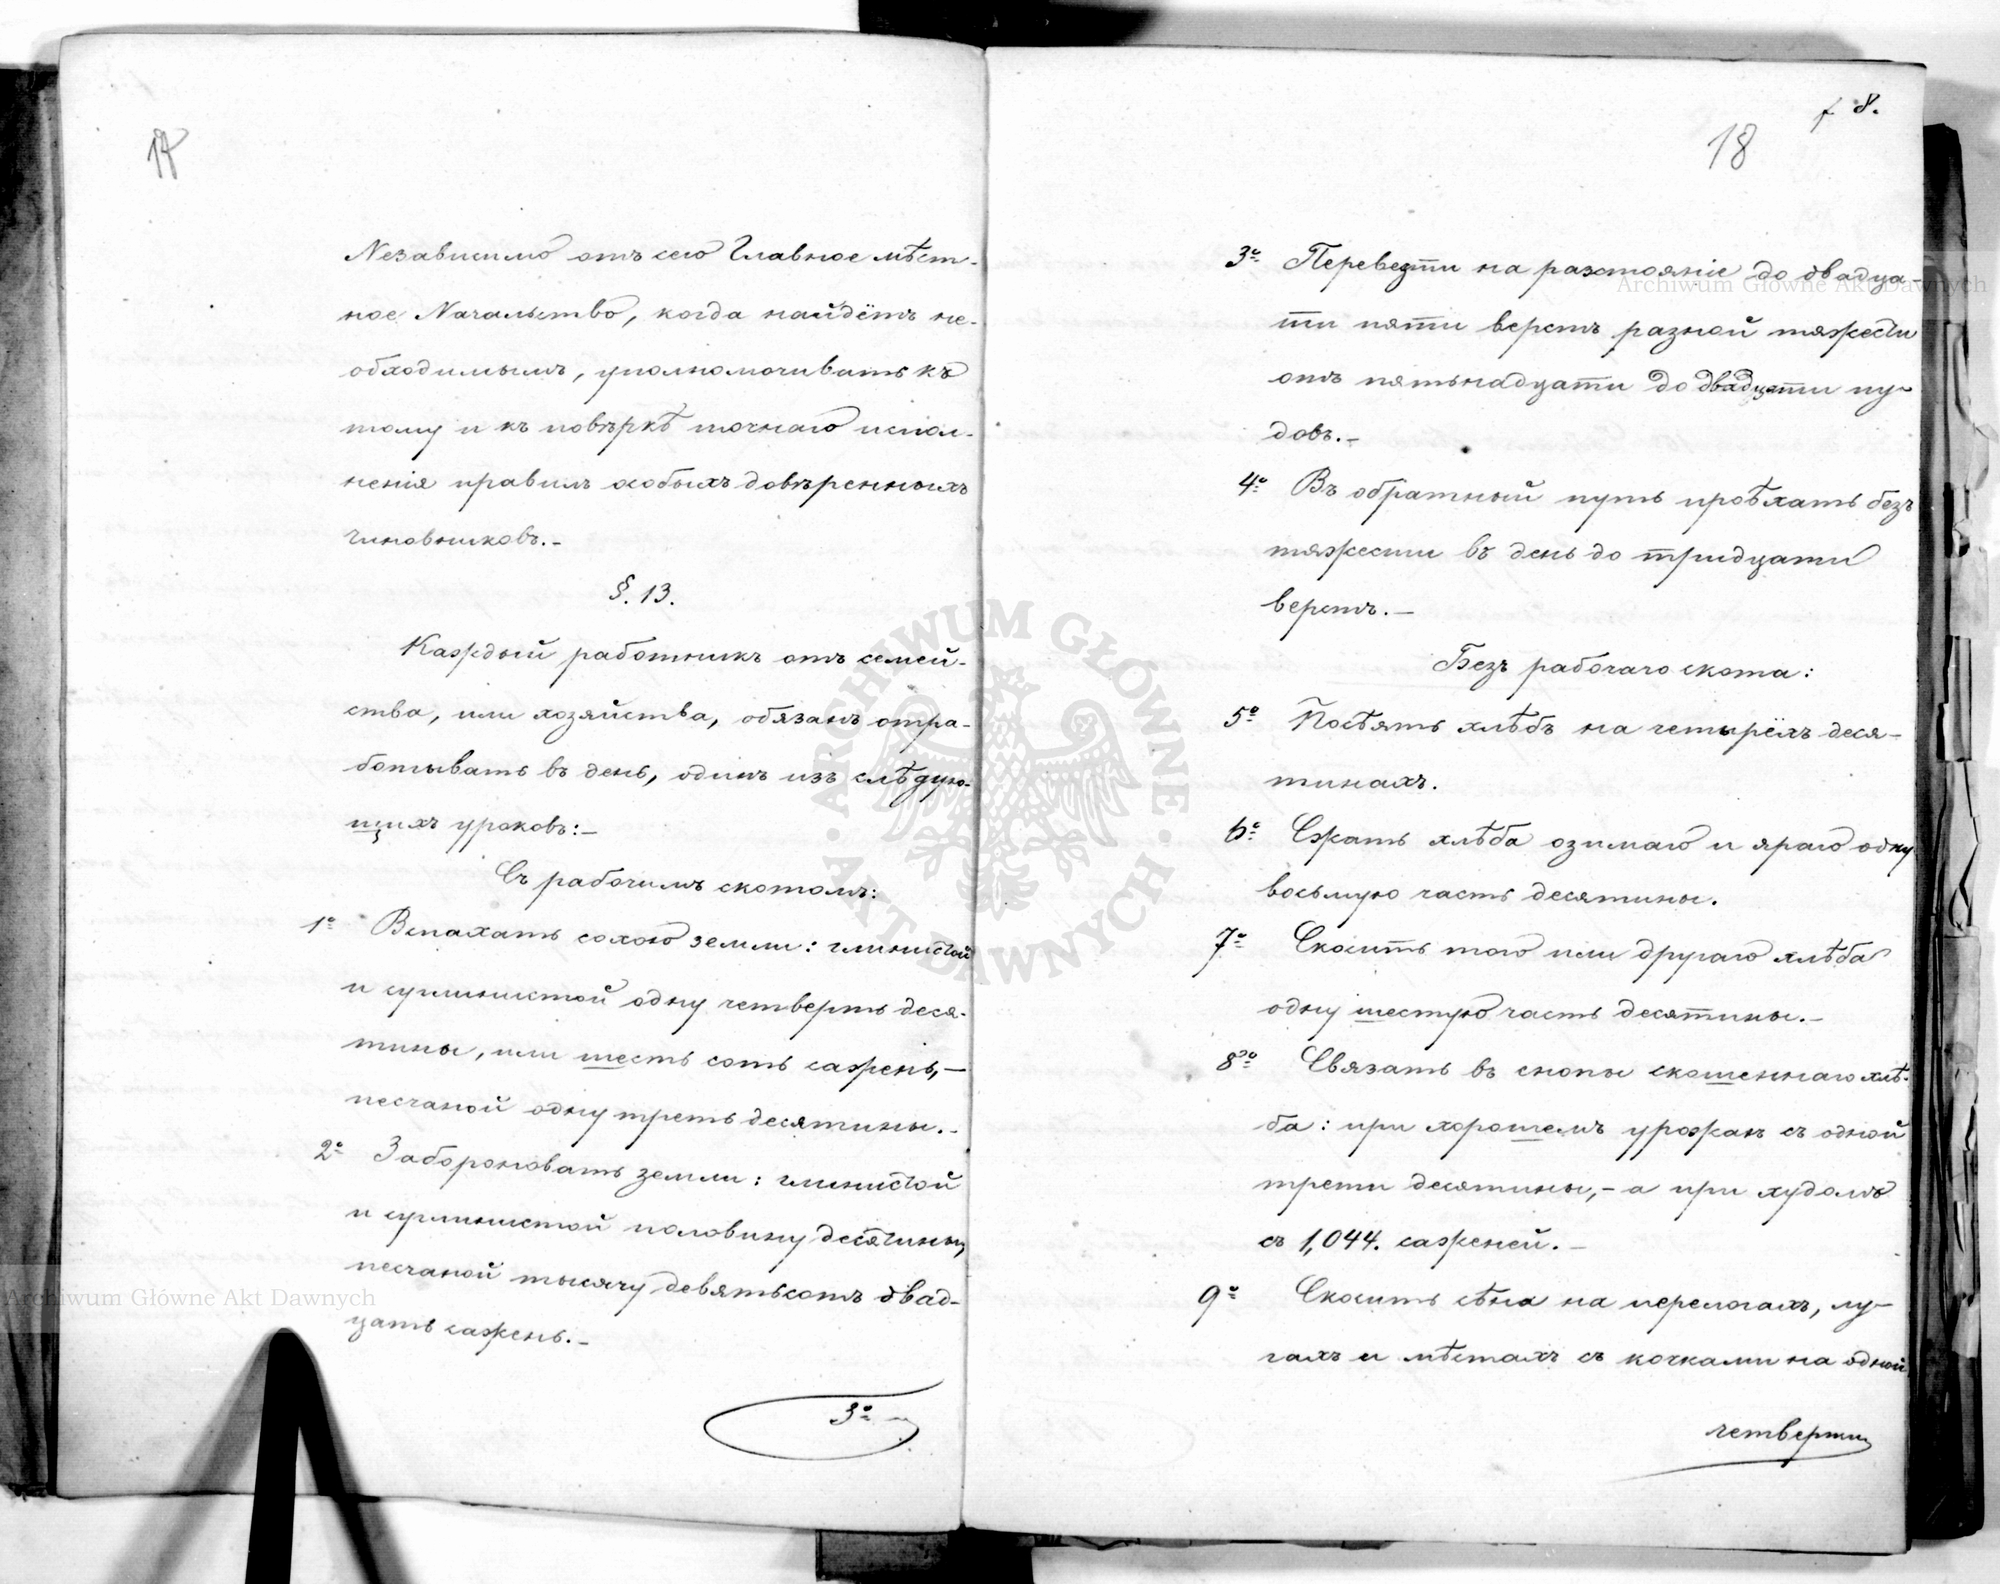 17
Независимо отъ сего Главное мѣст-
ное Начальство, когда найдётъ не-
обходимымъ, уполномочиваетъ къ
тому и къ повѣркѣ точнаго испол-
ненія правилъ особыхъ довѣренныхъ
чиновниковъ.-
§. 13.
Каждый работникъ отъ семей-
ства, или хозяйства, обязанъ отра-
ботывать въ день, одинъ изъ слѣдую-
щихъ уроковъ:-
Съ рабочимъ скотомъ:
1е Вспахать сохою земли: глинистой
и суглинистой одну четверть деся-
тины, или шесть сотъ сажень,-
песчаной одну треть десятины.-
2е Забороновать земли: глинистой
и суглинистой половину десятины,
песчаной тысячу девятьсотъ двад-
цать сажень.-
3е
f 8.
18
3е Перевезти на разстояніе до двадца-
ти пяти верстъ разной тяжести
отъ пятьнадцати до двадцати пу-
довъ.-
4е Въ обратный путь проѣхать безъ
тяжести въ день до тридцати
верстъ.-
Безъ рабочаго скота:
5е Посѣять хлѣбъ на четырёхъ деся-
тинахъ.
6е Сжать хлѣба озимаго и яраго одну
восьмую часть десятины.
7е Скосить того или другаго хлѣба
одну шестую часть десятины.-
8е Связать въ снопы скошеннаго хлѣ-
ба: при хорошемъ урожаѣ съ одной
трети десятины,- а при худомъ
съ 1,044. саженей.-
9е Скосить сѣна на перелогахъ, лу-
гахъ и мѣстахъ съ кочками на одной
четверти
Archiwum Główne Akt Dawnych
Archiwum Główne Akt Dawnych
ARCHIWUM GŁÓWNE · AKT DAWNYCH ·